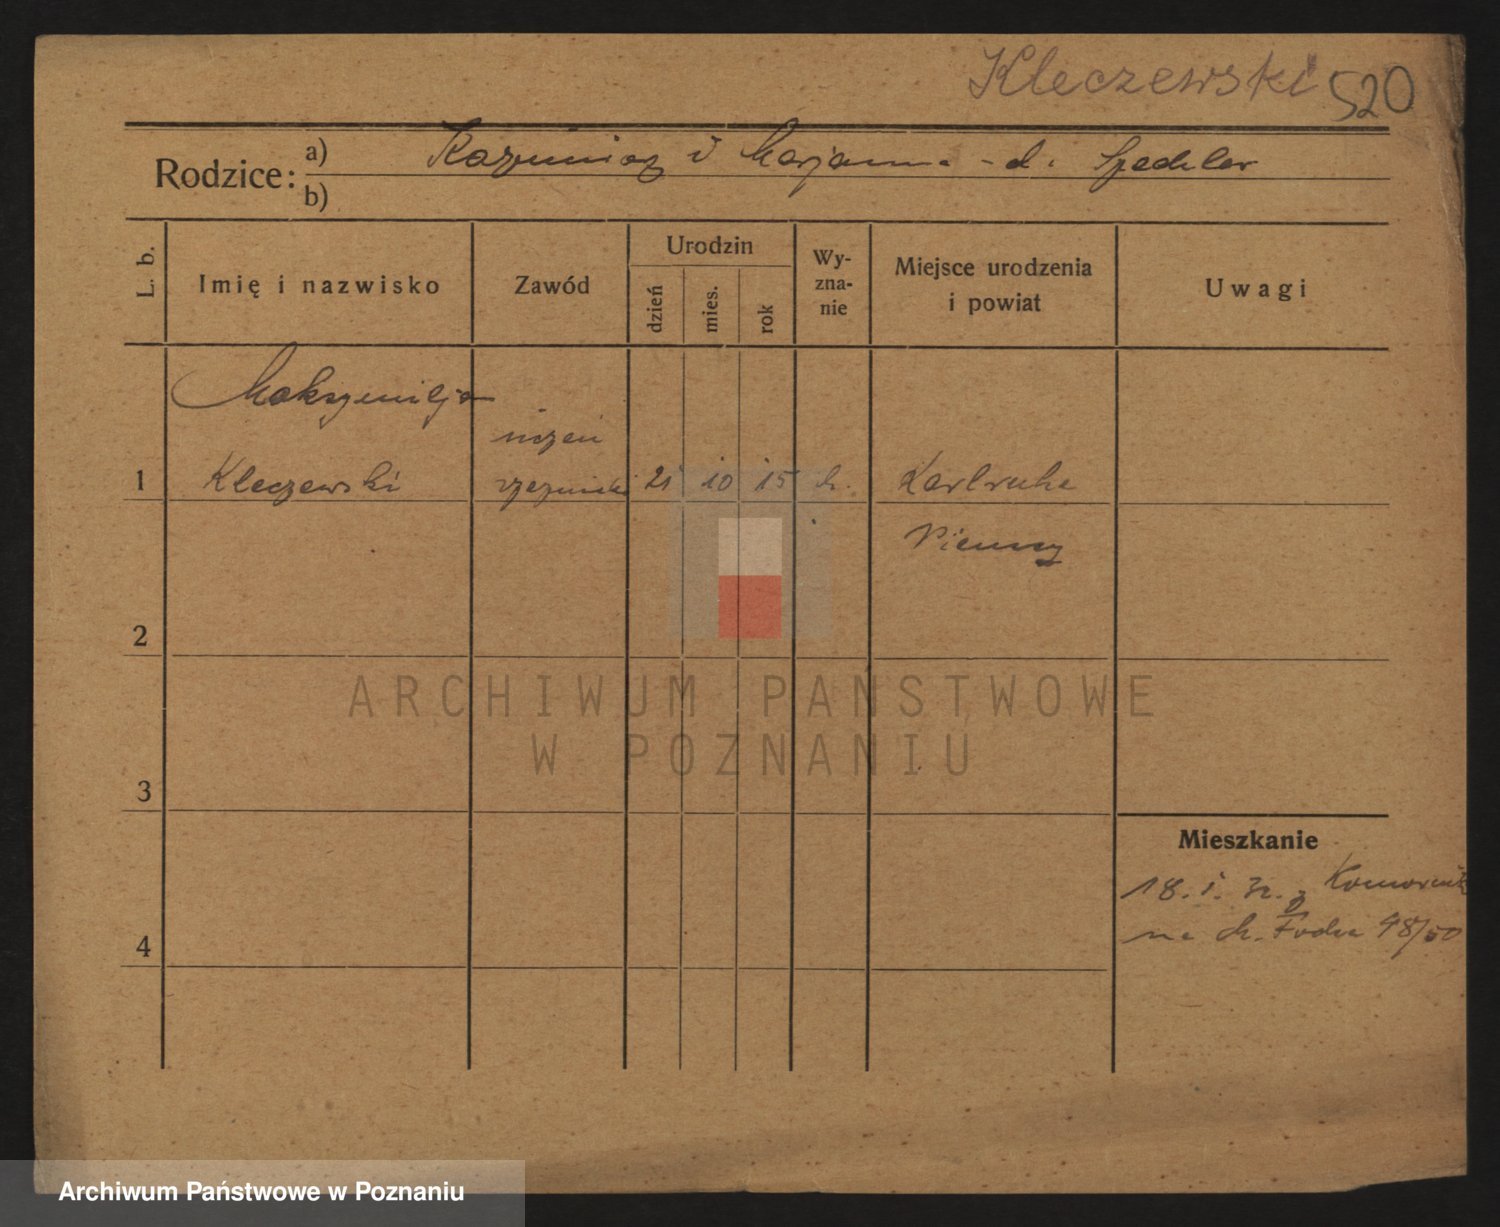 Kleczewski 520
Rodzice: a) Kazimierz i Marjanna - d. Speckler
b)
L. b. Imię i nazwisko Zawód Urodzin dzień mies. rok Wy-zna-nie Miejsce urodzenia i powiat Uwagi
Maksymiljan
uczeń
1 Kleczewski rzeźnicki 21 10 15 k. Karlsruhe
Niemcy
2
3
Mieszkanie
18. i. 32. z Komornik
4 na M. Focha 48/50
ARCHIWUM PAŃSTWOWE
W POZNANIU
Archiwum Państwowe w Poznaniu